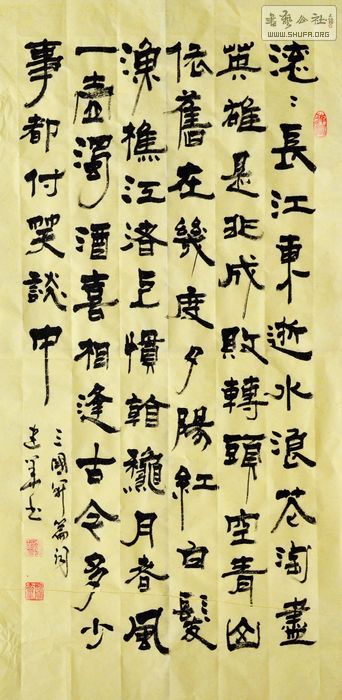 書藝公社
WWW.SHUFA.ORG
滚〻長江東逝水浪花淘盡
英雄是非成敗轉頭空青山
依舊在幾度夕陽紅白髮
漁樵江渚上慣看龝月春風
一壺濁酒喜相逢古今多少
事都付笑談中
三國開篇词
建华书